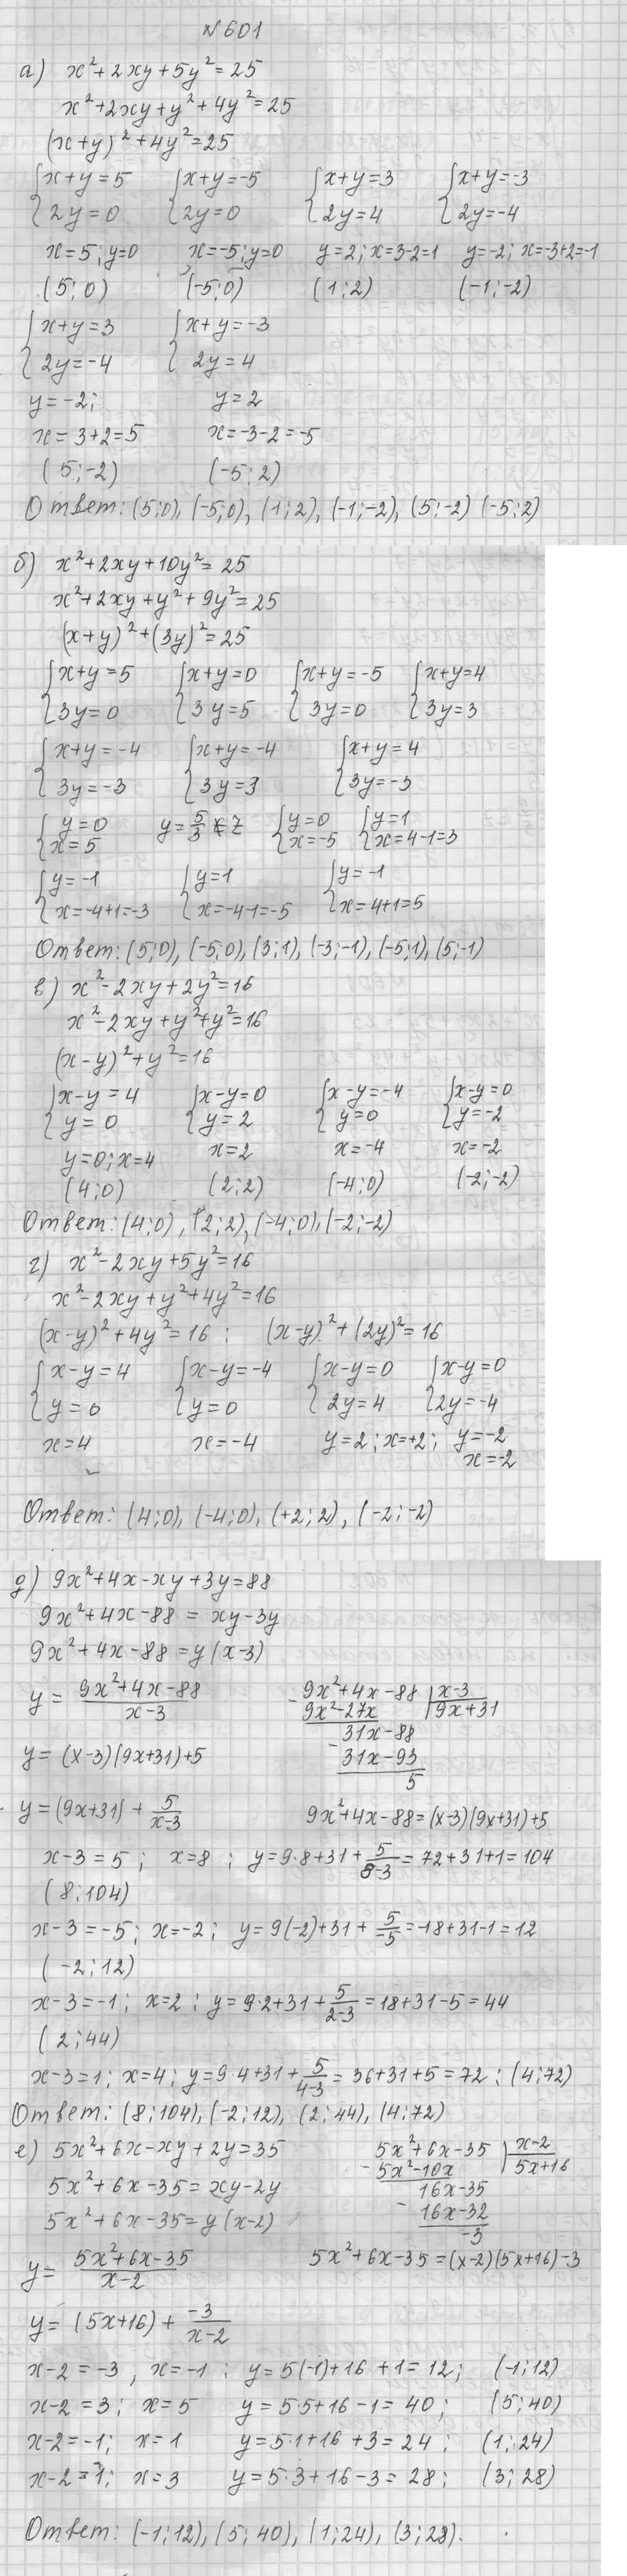 №601
а) x²+2xy+5y²=25
x²+2xy+y²+4y²=25
(x+y)²+4y²=25
{x+y=5 {x+y=-5 {x+y=3 {x+y=-3
{2y=0 {2y=0 {2y=4 {2y=-4
x=5; y=0 x=-5; y=0 y=2; x=3-2=1 y=-2; x=-3+2=-1
(5;0) (-5;0) (1;2) (-1;-2)
{x+y=3 {x+y=-3
{2y=-4 {2y=4
y=-2; y=2
x=3+2=5 x=-3-2=-5
(5;-2) (-5;2)
Ответ: (5;0), (-5;0), (1;2), (-1;-2), (5;-2) (-5;2)
б) x²+2xy+10y²=25
x²+2xy+y²+9y²=25
(x+y)²+(3y)²=25
{x+y=5 {x+y=0 {x+y=-5 {x+y=4
{3y=0 {3y=5 {3y=0 {3y=3
{x+y=-4 {x+y=-4 {x+y=4
{3y=-3 {3y=3 {3y=-3
{y=0 y=5/3 ∉ Z {y=0 {y=1
{x=5 {x=-5 {x=4-1=3
{y=-1 {y=1 {y=-1
{x=-4+1=-3 {x=-4-1=-5 {x=4+1=5
Ответ: (5;0), (-5;0), (3;1), (-3;-1), (-5;1), (5;-1)
в) x²-2xy+2y²=16
x²-2xy+y²+y²=16
(x-y)²+y²=16
{x-y=4 {x-y=0 {x-y=-4 {x-y=0
{y=0 {y=2 {y=0 {y=-2
y=0; x=4 x=2 x=-4 x=-2
(4;0) (2;2) (-4;0) (-2;-2)
Ответ: (4;0), (2;2), (-4;0), (-2;-2)
г) x²-2xy+5y²=16
x²-2xy+y²+4y²=16
(x-y)²+4y²=16; (x-y)²+(2y)²=16
{x-y=4 {x-y=-4 {x-y=0 {x-y=0
{y=0 {y=0 {2y=4 {2y=-4
x=4 x=-4 y=2; x=+2; y=-2
x=-2
Ответ: (4;0), (-4;0), (+2;2), (-2;-2)
д) 9x²+4x-xy+3y=88
9x²+4x-88 = xy-3y
9x²+4x-88=y(x-3)
y= (9x²+4x-88)/(x-3) -9x²+4x-88 |x-3
9x²-27x |9x+31
31x-88
y=(x-3)(9x+31)+5 -31x-93
5
y=(9x+31)+5/(x-3) 9x²+4x-88=(x-3)(9x+31)+5
x-3=5; x=8; y=9·8+31+5/(8-3)=72+31+1=104
(8;104)
x-3=-5; x=-2; y=9(-2)+31+5/(-5)=-18+31-1=12
(-2;12)
x-3=-1; x=2; y=9·2+31+5/(2-3)=18+31-5=44
(2;44)
x-3=1; x=4; y=9·4+31+5/(4-3)=36+31+5=72; (4;72)
Ответ: (8;104), (-2;12), (2;44), (4;72)
е) 5x²+6x-xy+2y=35 5x²+6x-35 |x-2
-5x²-10x |5x+16
5x²+6x-35=xy-2y 16x-35
5x²+6x-35=y(x-2) -16x-32
-3
y= (5x²+6x-35)/(x-2) 5x²+6x-35=(x-2)(5x+16)-3
y=(5x+16)+(-3)/(x-2)
x-2=-3, x=-1; y=5(-1)+16+1=12; (-1;12)
x-2=3; x=5 y=5·5+16-1=40; (5;40)
x-2=-1; x=1 y=5·1+16+3=24; (1;24)
x-2=1; x=3 y=5·3+16-3=28; (3;28)
Ответ: (-1;12), (5;40), (1;24), (3;28).